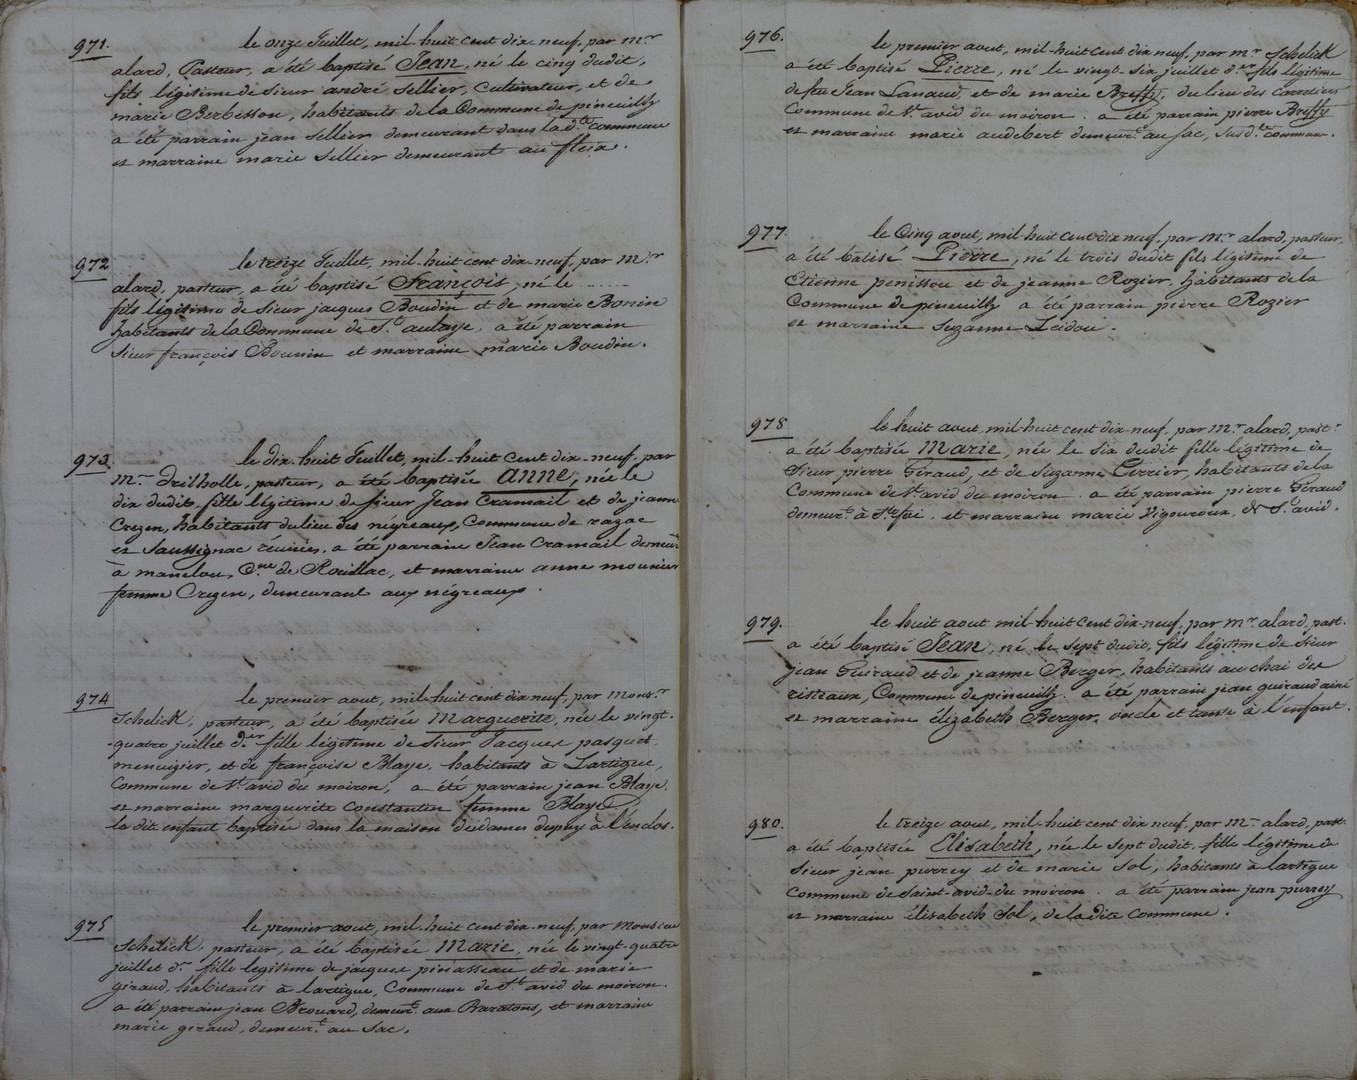 971.
le onze Juillet, mil-huit cent dix neuf, par mr
alard, Pasteur, a été baptisé Jean, né le cinq dudit,
fils légitime de Sieur andré Sellier, Cultivateur, et de
marie Berbesson, habitants de la Commune de pineuilh
a été parrain jean Sellier demeurant dans la d.te commune
et marraine marie Sellier demeurant au fleix.
972
le treize Juillet, mil-huit cent dix-neuf, par M.r
alard, pasteur, a été baptisé François, né le ......
fils légitime de Sieur jacques Boudin et de marie Bonin
habitants de la Commune de S.t aulaye, a été parrain
Sieur françois Bounin et marraine marie Boudin.
973.
le dix-huit Juillet, mil-huit cent dix-neuf, par
mr Dreilholle, pasteur, a été baptisée anne, née le
dix dudit, fille légitime de Sieur Jean Cramail et de jeanne
Crezen, habitants du lieu des negreaux, Commune de razac
et Saussignac réunies, a été parrain Jean Cramail demeur.t
à manelou, C.ne de Rouillac, et marraine anne mounier
femme Cregen, demeurant aux négreaux.
974
le premier aout, mil-huit cent dix neuf, par Mons.r
Schelick, pasteur, a été baptisée Marguerite, née le vingt-
-quatre juillet d.er fille légitime de Sieur Jacques pasquet
menuizier, et de françoise Blaye, habitants à Lartigue,
Commune de S.t avid du moiron, a été parrain jean Blaye.
et marraine marguerite Constantin femme Blaye
la dit enfant baptisée dans la maison de dames dupuy à l'enclos.
975
le premier aout, mil-huit cent dix-neuf, par Monsieur
Schelick, pasteur, a été baptisée Marie, née le vingt-quatre
juillet d.r fille legitime de jacques piniasseau et de marie
giraud, habitants à lartigue, Commune de S.t avid du moiron.
a été parrain jean Brouard, demeur.t aux Baratons, et marraine
marie giraud, demeur.t au Sac.
976.
le premier aout, mil-huit cent dix neuf, par mr Schelick
a été baptisé Pierre, né le vingt-six juillet d.er fils légitime
de feu Jean Lanaud, et de marie Breffy, du lieu des Carrelets
Commune de S.t avid du moiron. a été parrain pierre Breffy
et marraine marie audebert demeur.t au Sac, Susd.te Commune.
977.
le Cinq aout, mil-huit cent dix neuf, par M.r alard, pasteur,
a été batisé Pierre, né le trois dudit fils légitime de
Etienne penissou et de jeanne Rozier, habitants de la
Commune de pineuilh a été parrain pierre Rozier
et marraine Suzanne Leidou.
978
le huit aout, mil-huit cent dix-neuf, par M.r alard, past.r
a été baptisée Marie, née le Six dudit fille légitime de
Sieur pierre Giraud, et de Suzanne Cerrier, habitants de la
Commune de S.t avid du moiron. a été parrain pierre Giraud
demeur.t à S.te foi. et marraine marie Vigouroux, de S.t avid.
979.
le huit aout mil-huit cent dix-neuf, par mr. alard, past.
a été baptisé Jean, né le Sept dudit, fils légitime de Sieur
jean Guiraud et de jeanne Berger, habitants au chai des
risteaux, Commune de pineuilh. a été parrain jean guiraud ainé
et marraine élizabeth Berger, oncle et tante à l'enfant.
980.
le treize aout, mil-huit cent dix neuf, par M.r alard, past.
a été baptisée Elisabeth, née le Sept dudit, fille légitime de
Sieur jean purrey et de marie Sol, habitants à lartigue
Commune de Saint-avid-du moiron. a été parrain jean purrey
et marraine élisabeth Sol, de la dite Commune.